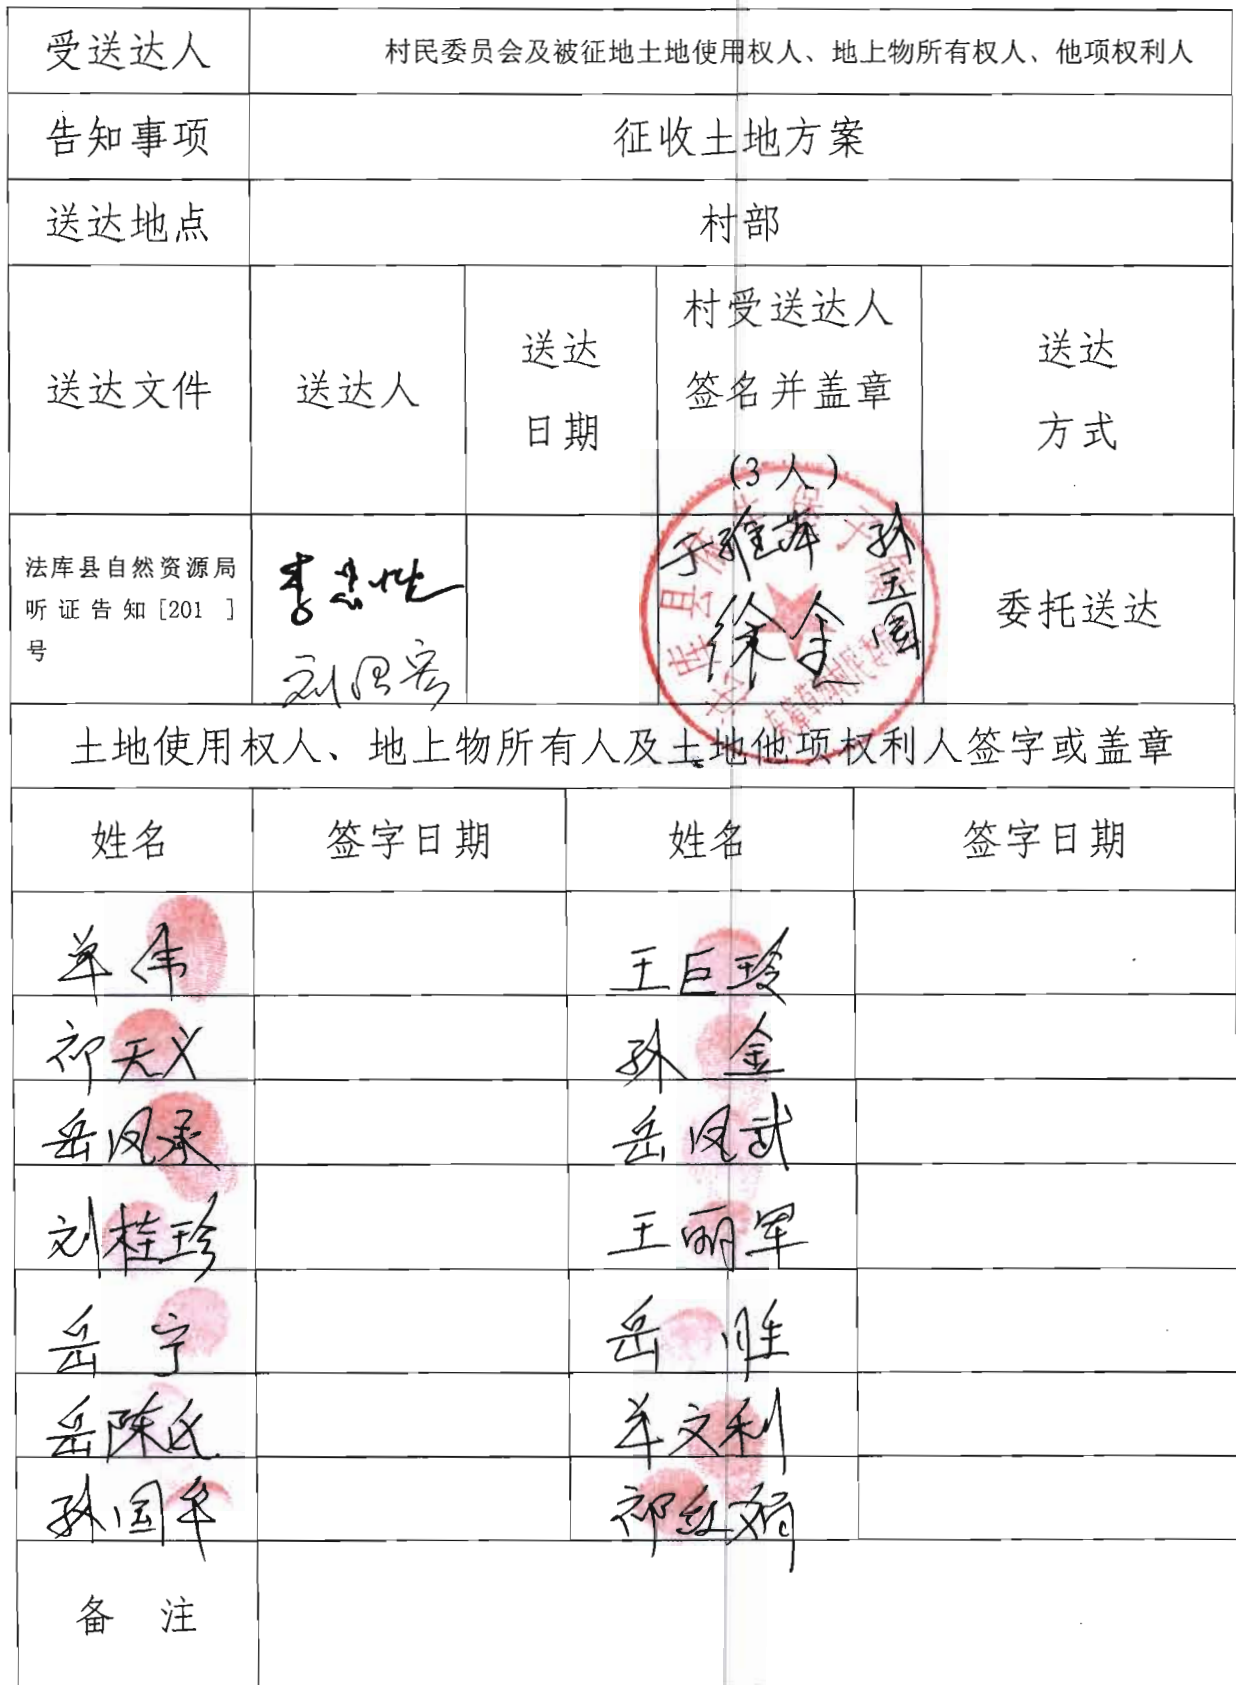 受送达人 村民委员会及被征地土地使用权人、地上物所有权人、他项权利人
告知事项 征收土地方案
送达地点 村部
送达文件 送达人 送达日期 村受送达人签名并盖章(3人) 送达方式
法库县自然资源局
听证告知[201 ]
号
于雅萍 孙玉国
徐金
委托送达
土地使用权人、地上物所有人及土地他项权利人签字或盖章
姓名 签字日期 姓名 签字日期
单伟 王巨玲
祁天义 孙金
岳凤承 岳凤武
刘桂珍 王丽军
岳宁 岳胜
岳陈氏 单文利
孙国平 祁红娟
备 注